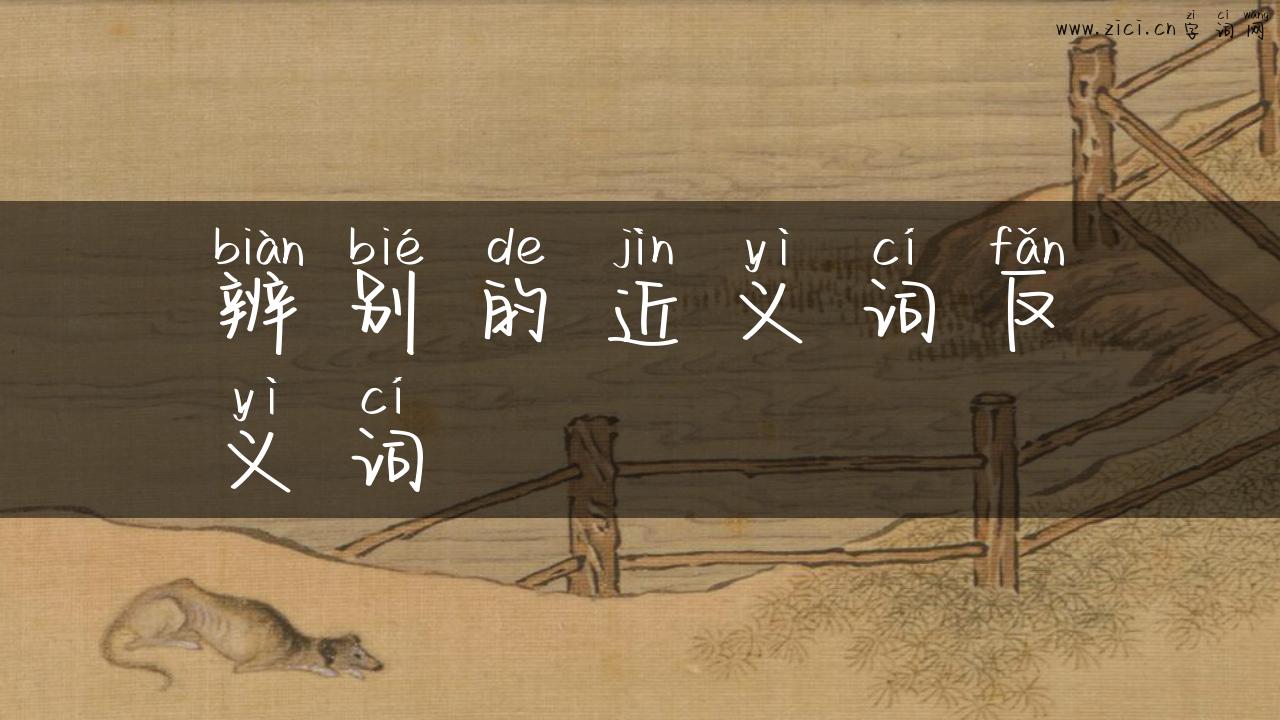 zì cí wǎng
www.zici.cn 字词网
biàn bié de jìn yì cí fǎn
辨别的近义词反
yì cí
义词